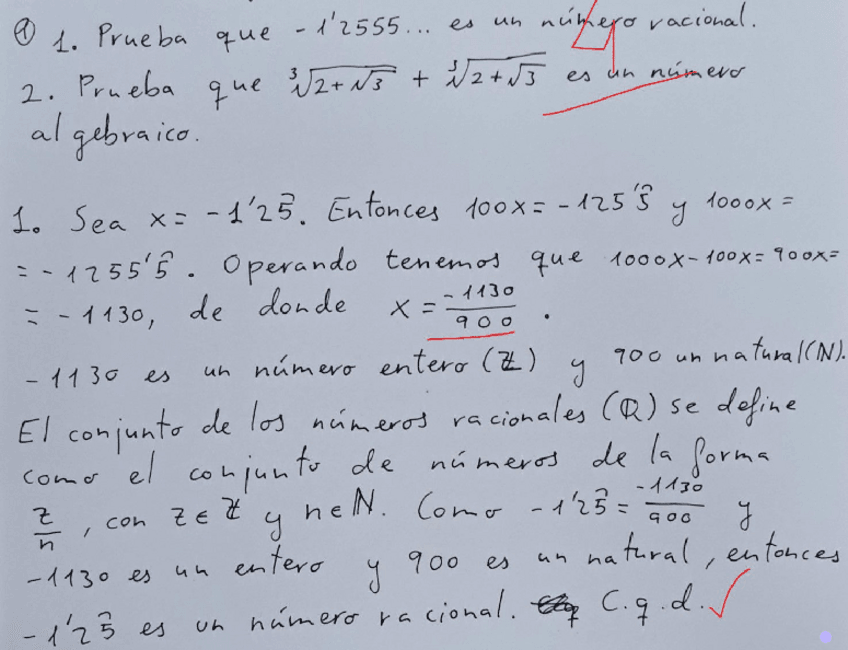 ① 1. Prueba que -1'2555... es un número racional.
2. Prueba que ∛(2+√3) + ∛(2+√3) es un número
algebraico.
1. Sea x = -1'25̂. Entonces 100x = -125'5̂ y 1000x =
= -1255'5̂. Operando tenemos que 1000x-100x = 900x =
= -1130, de donde x = -1130/900.
-1130 es un número entero (ℤ) y 900 un natural (ℕ).
El conjunto de los números racionales (ℚ) se define
como el conjunto de números de la forma
z/n, con z ∈ ℤ y n ∈ ℕ. Como -1'25̂ = -1130/900 y
-1130 es un entero y 900 es un natural, entonces
-1'25̂ es un número racional. C.q.d.